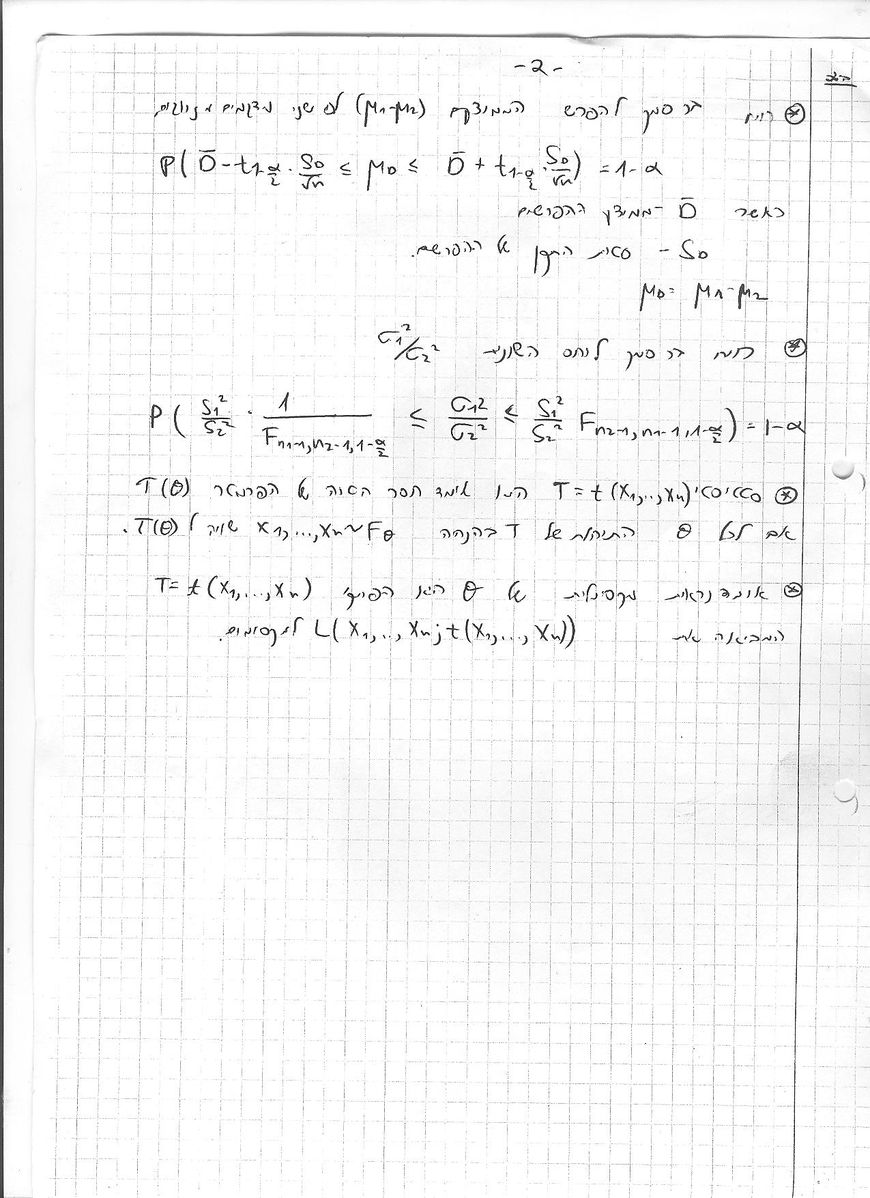 -2-
בס"ד
⊛ רווח בר סמך להפרש הממוצעים (μ1-μ2) לפי שני מדגמים מזווגים
P( D̄ - t1-α/2 · SD/√n ≤ μD ≤ D̄ + t1-α/2 · SD/√n ) = 1-α
כאשר D̄ - ממוצע ההפרשים
SD - סטית התקן של ההפרשים.
μD = μ1-μ2
⊛ רווח בר סמך ליחס השונויות σ1²/σ2²
P( S1²/S2² · 1/Fn1-1,n2-1,1-α/2 ≤ σ1²/σ2² ≤ S1²/S2² Fn2-1,n1-1,1-α/2 ) = 1-α
⊛ סטטיסטי T = t(X1,..,Xn) הינו אומד חסר הטיה של הפרמטר T(θ)
אם לכל θ התוחלת של T בהנחה X1,...,Xn~Fθ שווה ל T(θ).
⊛ אומד נראות מקסימלית של θ הינו הפונק' T= t(X1,...,Xn)
המביאה את L(X1,..,Xn; t(X1,...,Xn)) למקסימום.